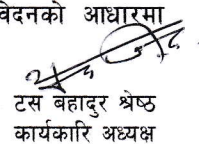 वेदनको आधारमा
टस बहादुर श्रेष्ठ
कार्यकारि अध्यक्ष